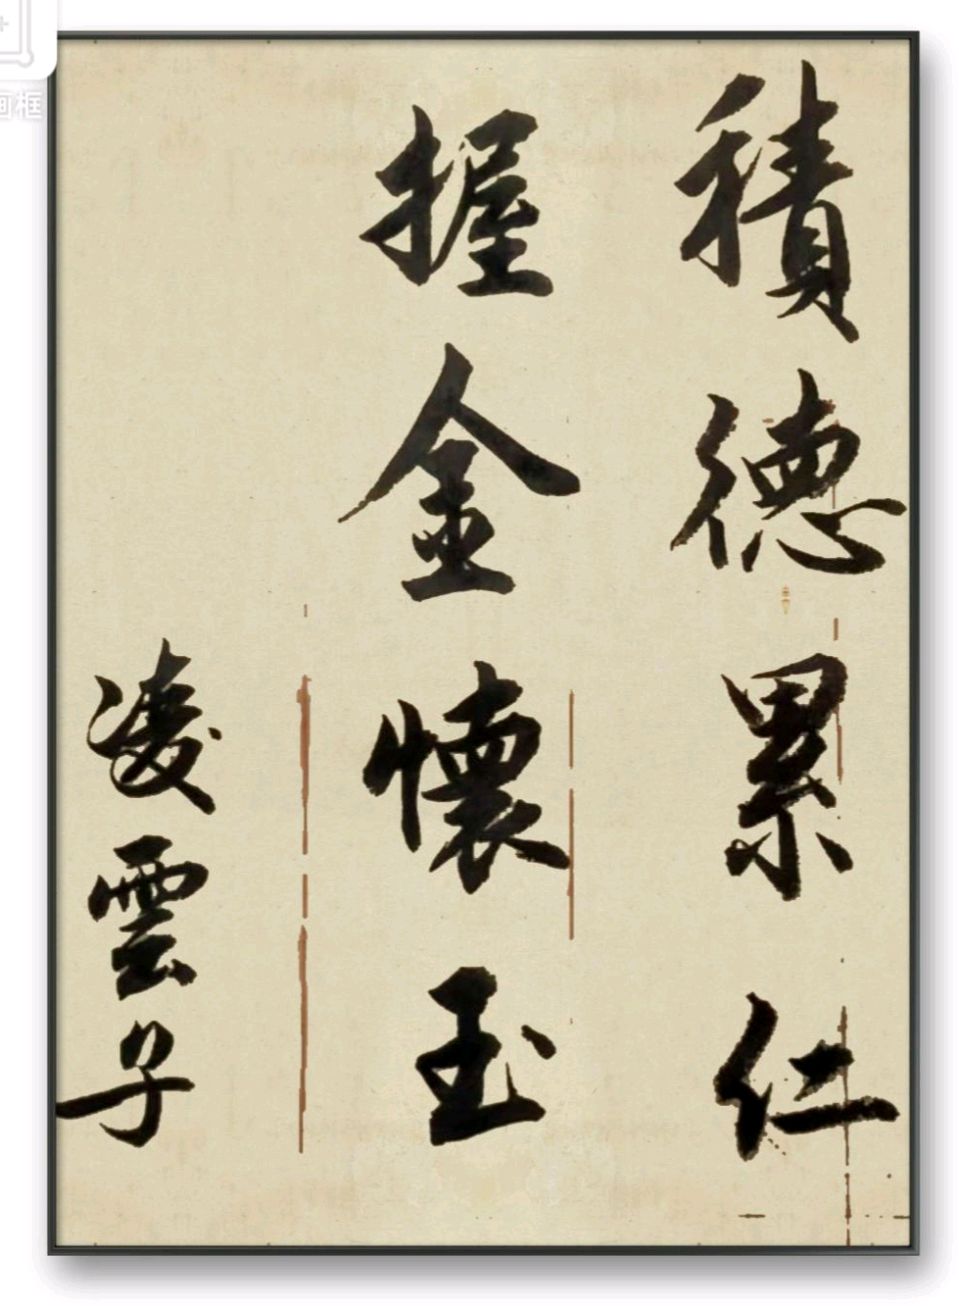 積德累仁
握金懷玉
凌雲子
画框